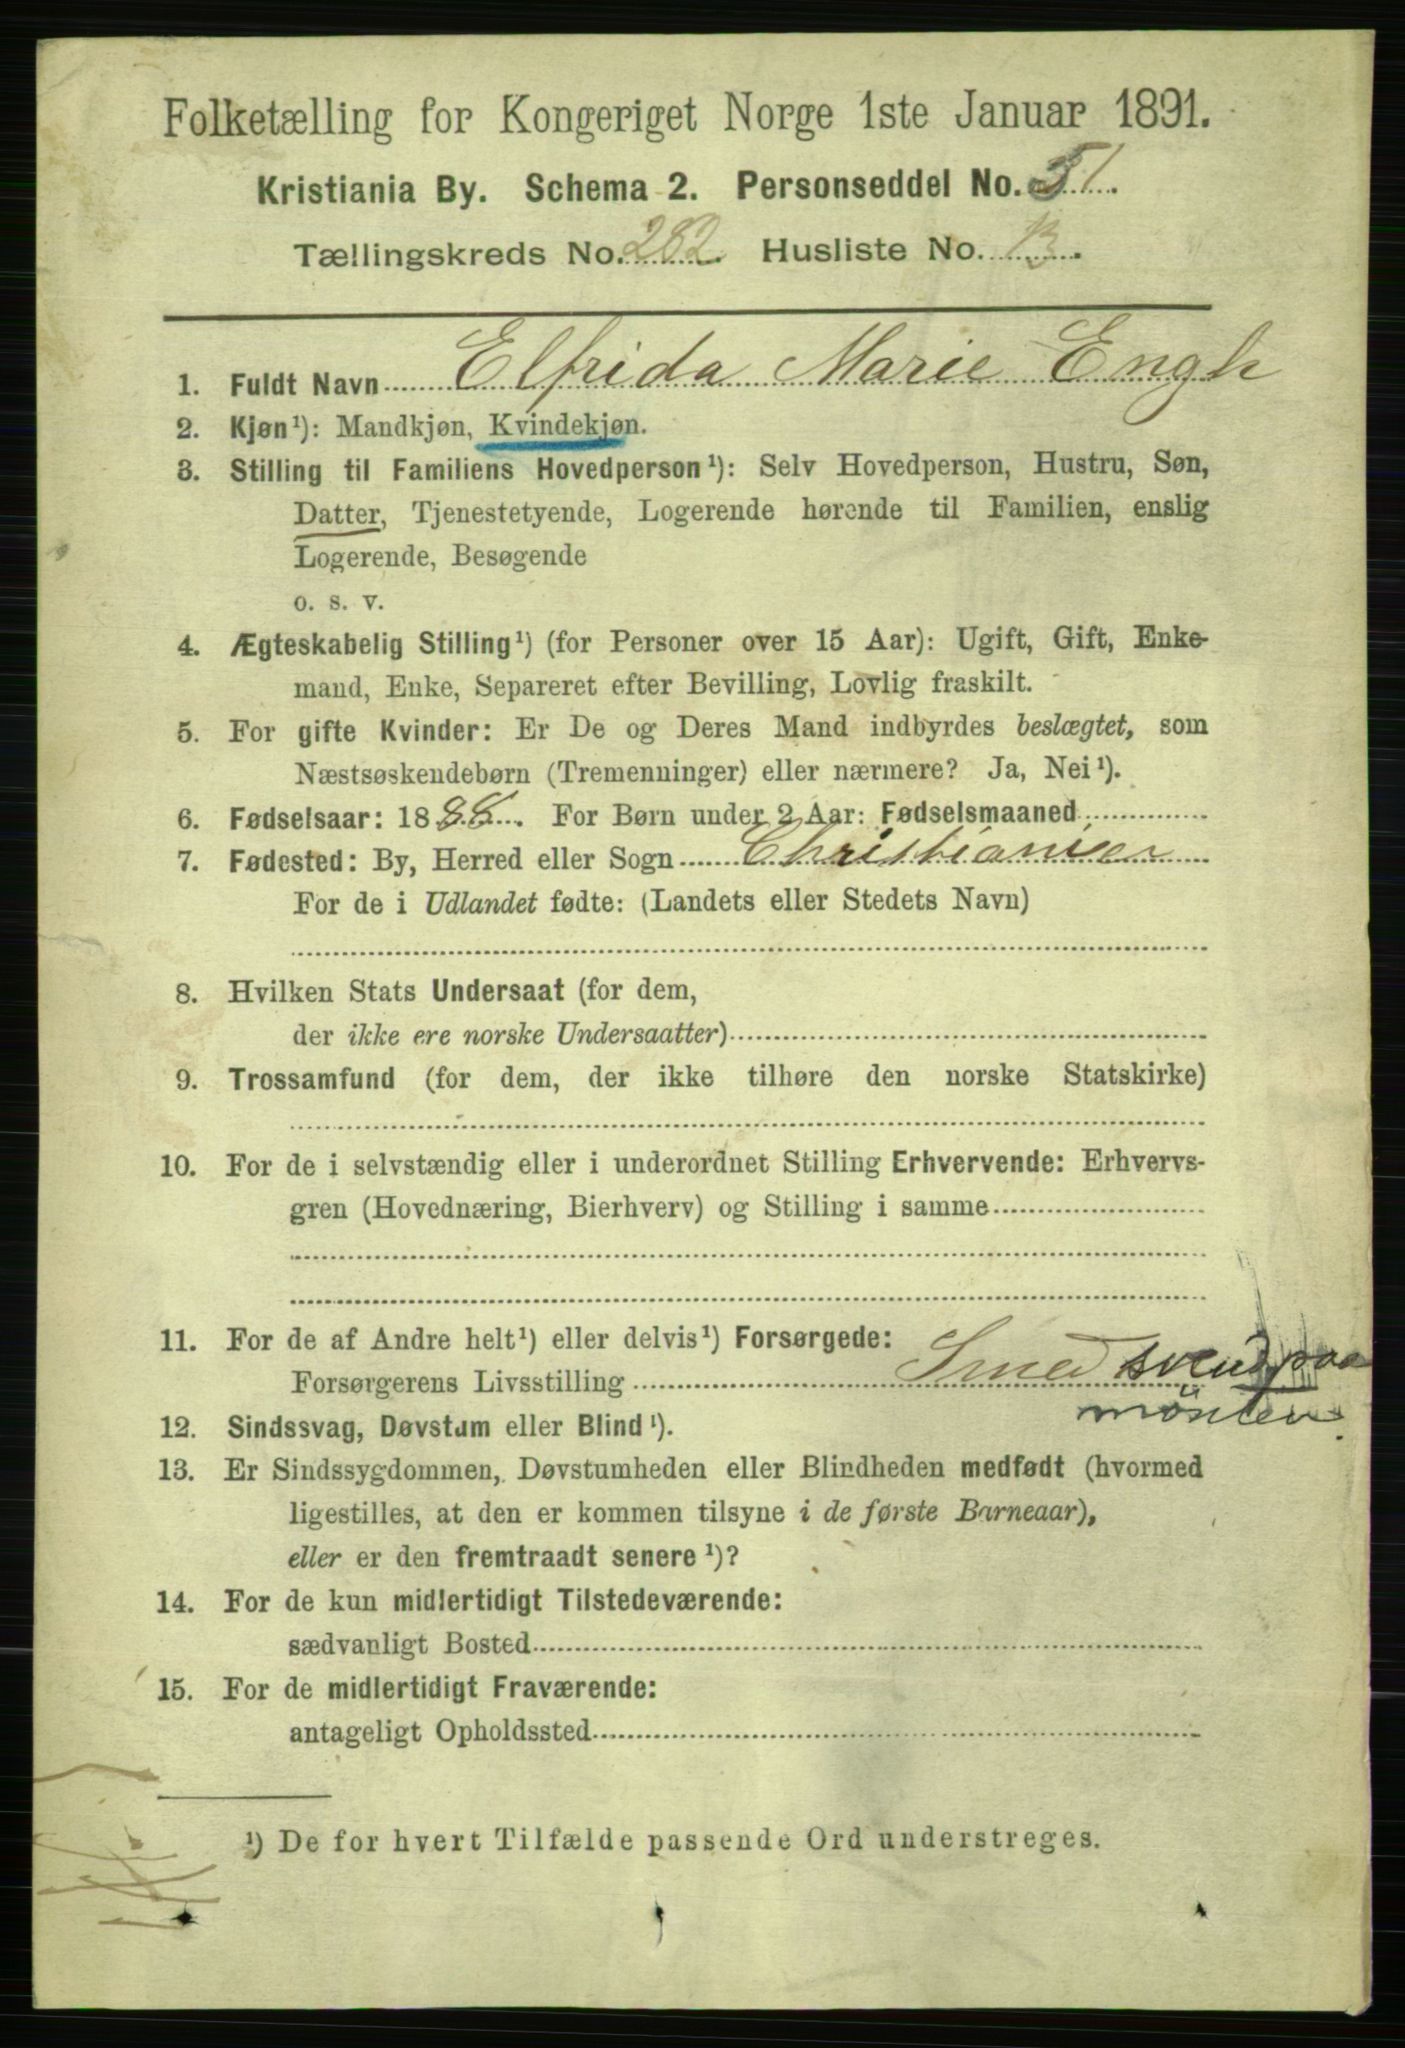 Folketælling for Kongeriget Norge 1ste Januar 1891.
Kristiania By. Schema 2. Personseddel No. 51.
Tællingskreds No. 282. Husliste No. 13.
1. Fuldt Navn Elfrida Marie Engh
2. Kjøn¹): Mandkjøn, Kvindekjøn.
3. Stilling til Familiens Hovedperson¹): Selv Hovedperson, Hustru, Søn,
Datter, Tjenestetyende, Logerende hørende til Familien, enslig
Logerende, Besøgende
o. s. v.
4. Ægteskabelig Stilling¹) (for Personer over 15 Aar): Ugift, Gift, Enke-
mand, Enke, Separeret efter Bevilling, Lovlig fraskilt.
5. For gifte Kvinder: Er De og Deres Mand indbyrdes beslægtet, som
Næstsøskendebørn (Tremenninger) eller nærmere? Ja, Nei¹).
6. Fødselsaar: 1888. For Børn under 2 Aar: Fødselsmaaned
7. Fødested: By, Herred eller Sogn Christiania
For de i Udlandet fødte: (Landets eller Stedets Navn)
8. Hvilken Stats Undersaat (for dem,
der ikke ere norske Undersaatter)
9. Trossamfund (for dem, der ikke tilhøre den norske Statskirke)
10. For de i selvstændig eller i underordnet Stilling Erhvervende: Erhvervs-
gren (Hovednæring, Bierhverv) og Stilling i samme
11. For de af Andre helt¹) eller delvis¹) Forsørgede:
Forsørgerens Livsstilling Smedsvend paa
mønten.
12. Sindssvag, Døvstum eller Blind¹).
13. Er Sindssygdommen, Døvstumheden eller Blindheden medfødt (hvormed
ligestilles, at den er kommen tilsyne i de første Barneaar),
eller er den fremtraadt senere¹)?
14. For de kun midlertidigt Tilstedeværende:
sædvanligt Bosted
15. For de midlertidigt Fraværende:
antageligt Opholdssted
¹) De for hvert Tilfælde passende Ord understreges.